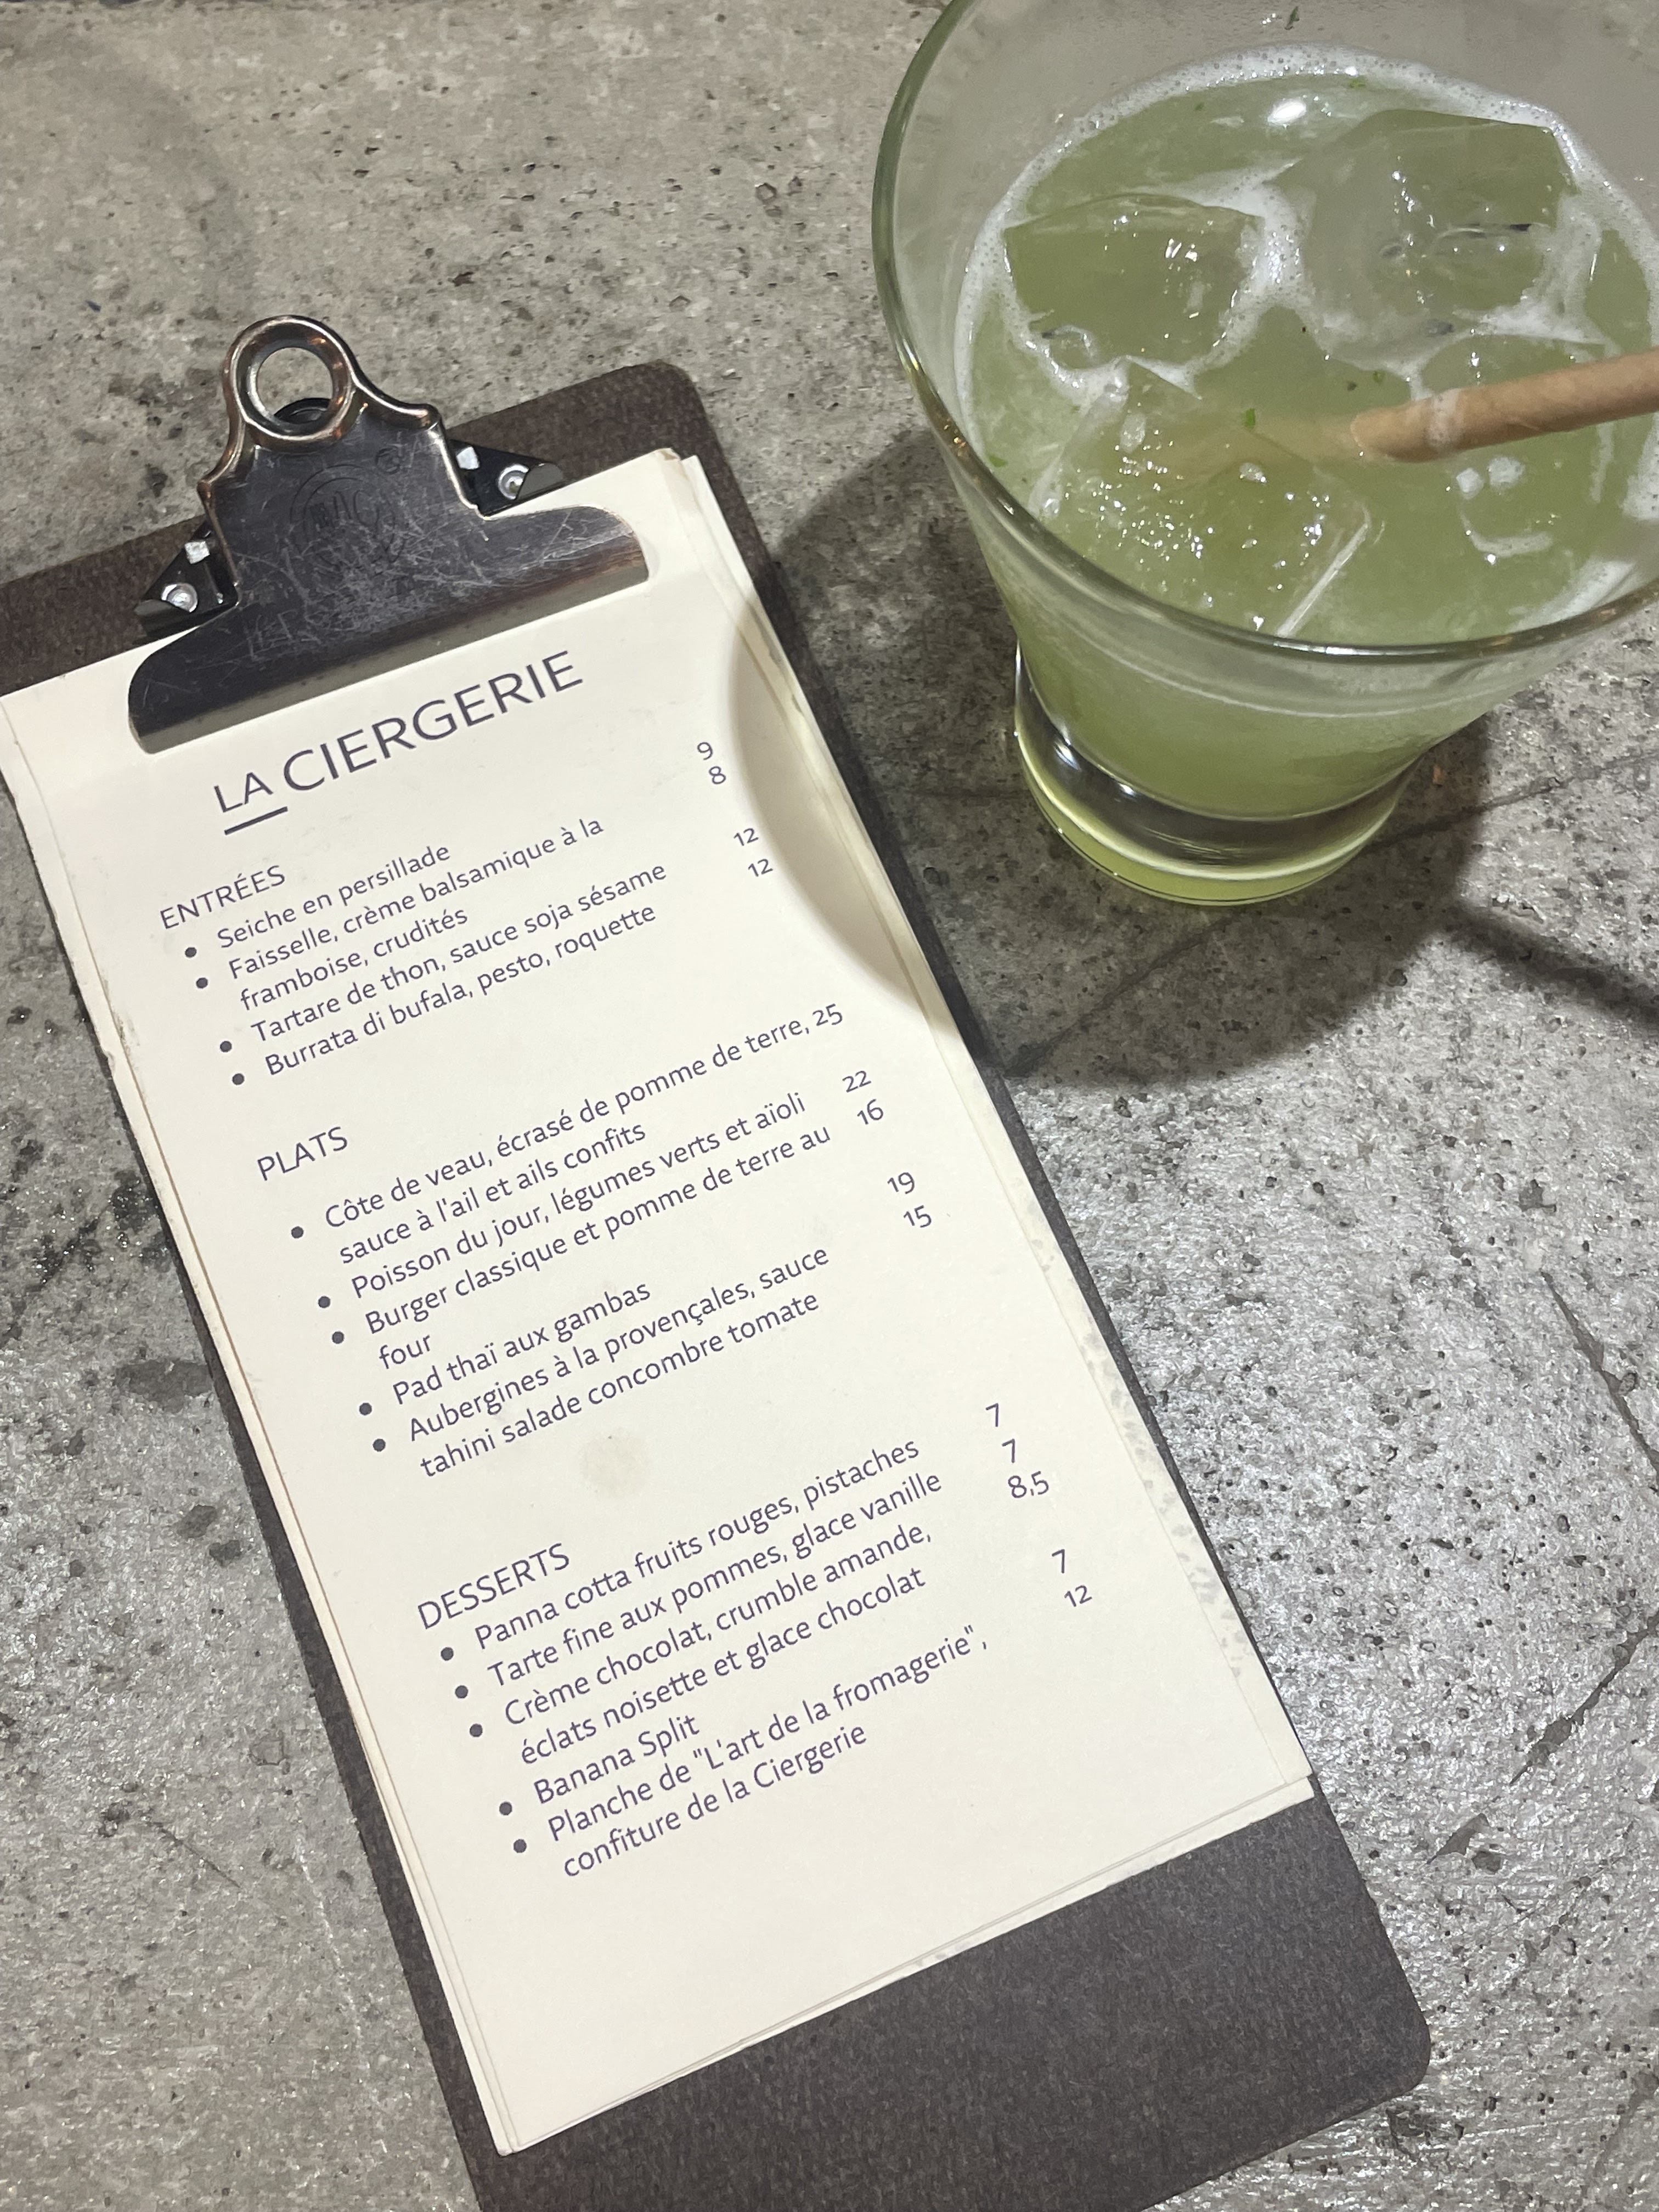 LA CIERGERIE
ENTRÉES
• Seiche en persillade 9
• Faisselle, crème balsamique à la 8
framboise, crudités
• Tartare de thon, sauce soja sésame 12
• Burrata di bufala, pesto, roquette 12
PLATS
• Côte de veau, écrasé de pomme de terre, 25
sauce à l'ail et ails confits
• Poisson du jour, légumes verts et aïoli 22
• Burger classique et pomme de terre au 16
four
• Pad thaï aux gambas 19
• Aubergines à la provençales, sauce 15
tahini salade concombre tomate
DESSERTS
• Panna cotta fruits rouges, pistaches 7
• Tarte fine aux pommes, glace vanille 7
• Crème chocolat, crumble amande, 8,5
éclats noisette et glace chocolat
• Banana Split 7
• Planche de "L'art de la fromagerie", 12
confiture de la Ciergerie